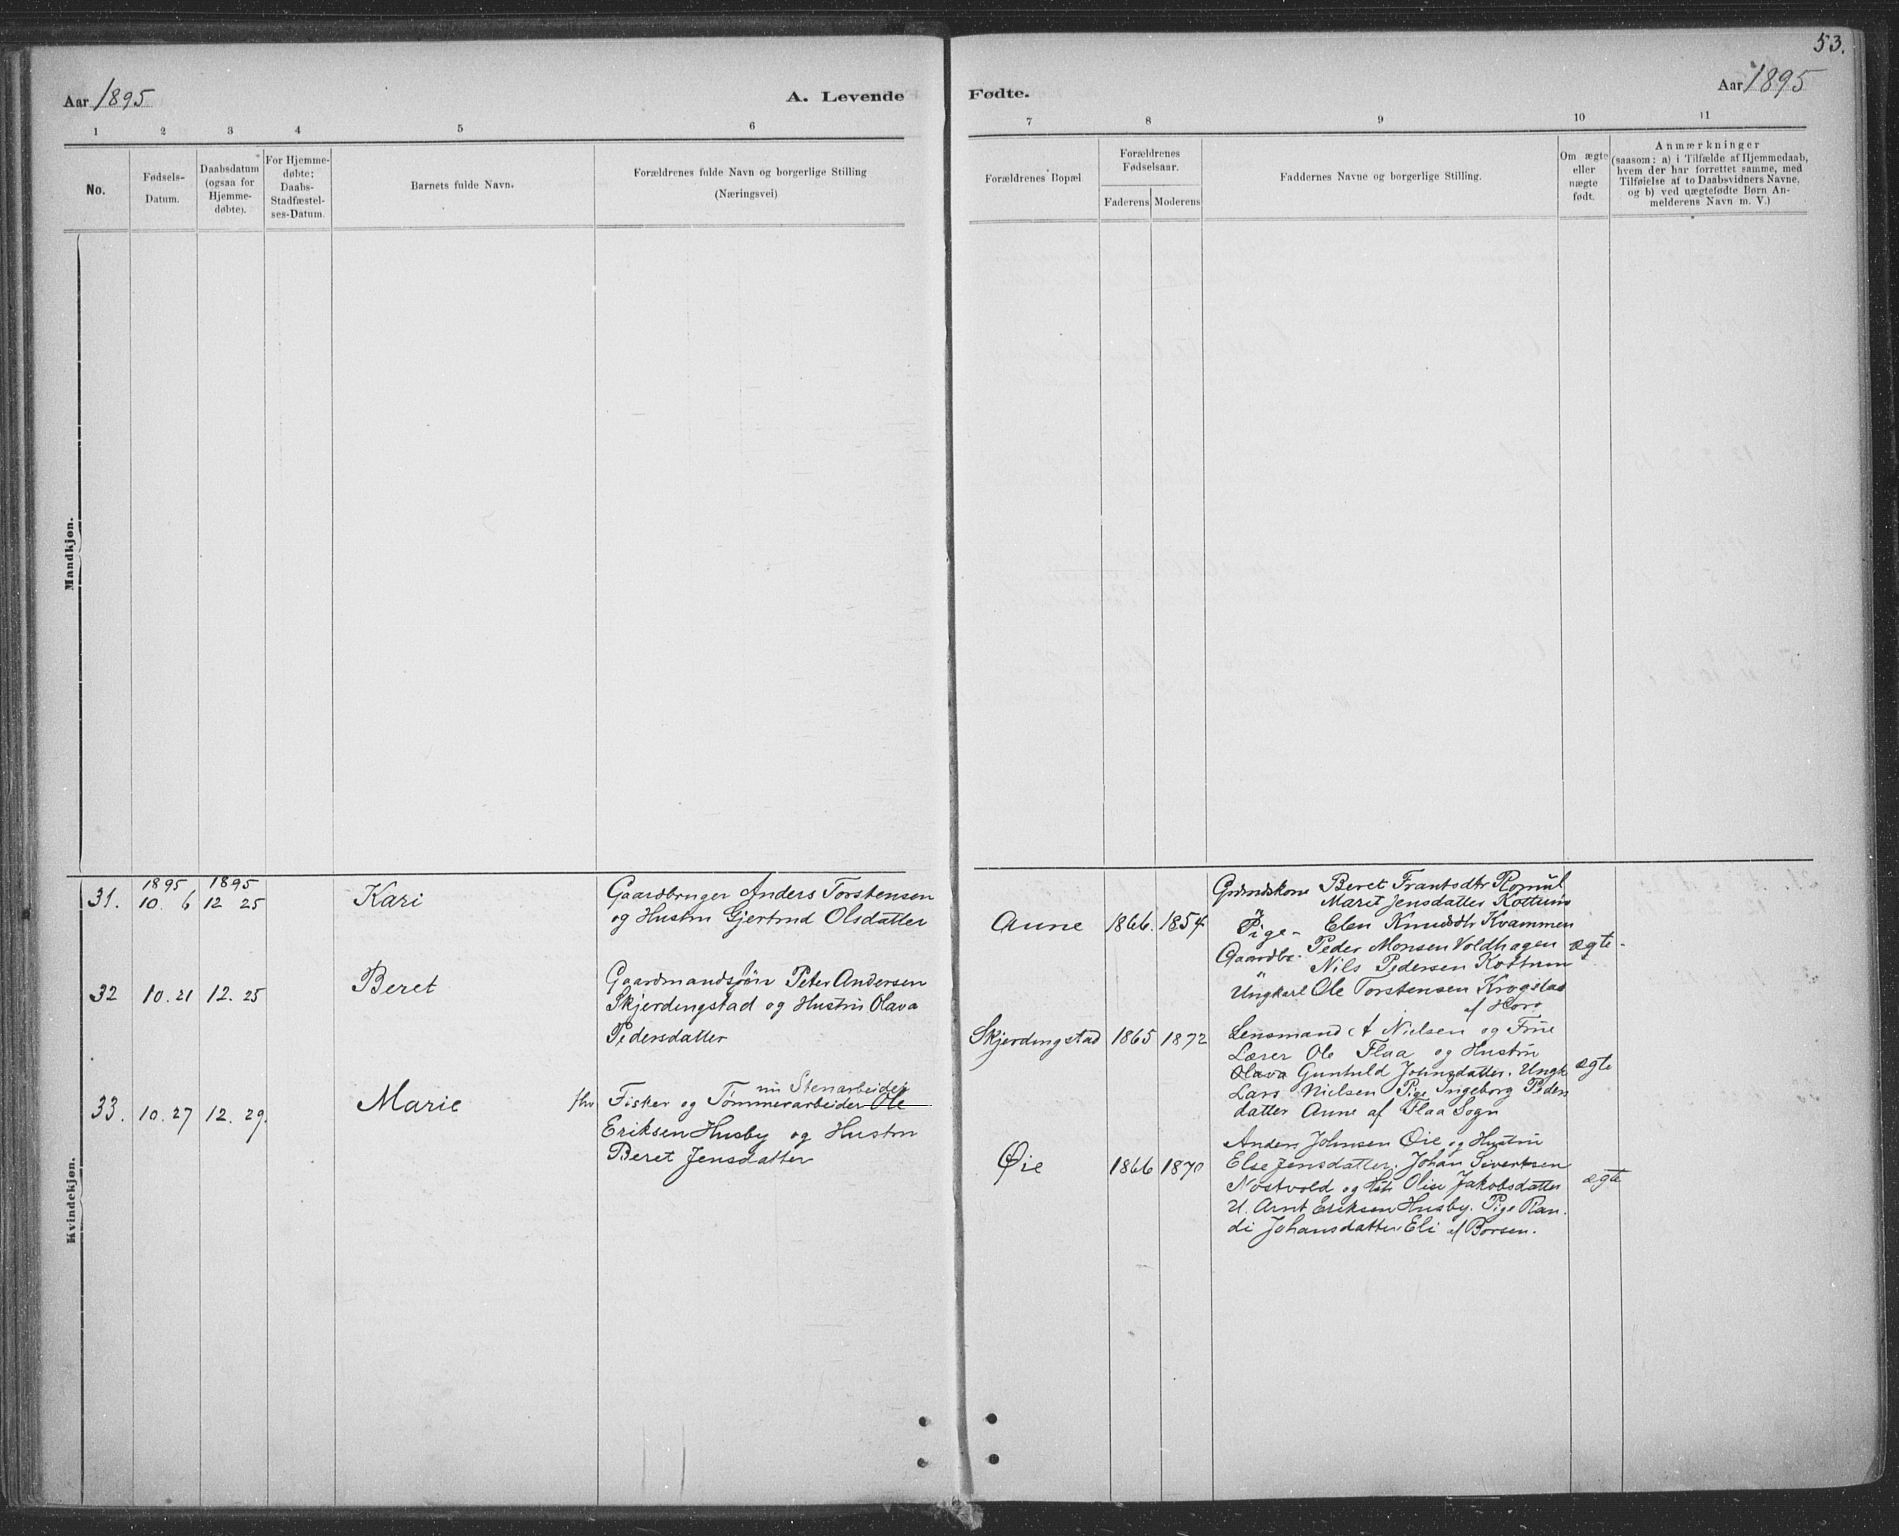 53.
Aar 1895
A. Levende
Fødte.
Aar 1895
1 2 3 4 5 6
7 8 9 10 11
No.
Fødsels-
Datum.
Daabsdatum
(ogsaa for
Hjemme-
døbte).
For Hjemme-
døbte:
Daabs-
Stadfæstel-
ses-Datum.
Barnets fulde Navn.
Forældrenes fulde Navn og borgerlige Stilling
(Næringsvei)
Forældrenes Bopæl
Forældrenes
Fødselsaar.
Faderens
Moderens
Faddernes Navne og borgerlige Stilling.
Om ægte
eller
nægte
født.
Anmærkninger
(saasom: a) i Tilfælde af Hjemmedaab,
hvem der har forrettet samme, med
Tilføielse af to Daabsvidners Navne,
og b) ved uægtefødte Børn An-
melderens Navn m. V.)
Mandkjøn.
Kvindekjøn.
31.
1895
10. 6
1895
12 25
Kari
Gaardbruger Anders Torstensen
og Hustru Gjertrud Olsdatter
Aune
1866. 1854
Beret Frantsdtr
Marit Jensdatter Kottum
Pige - Elen Knudsdtr Kvammen
Gaardbr. Peder Monsen Voldhagen
Nils Pedersen Kottum
Ungkarl Ole Torstensen Krogstad
af
ægte
32
10. 21
12. 25
Beret
Gaardmandssøn Peter Andersen
Skjerdingstad og Hustru Olava
Pedersdatter
Skjerdingstad
1865 1872
Lensmand A Nielsen og Frue
Lærer Ole Flaa og Hustru
Olava Gunhild Johnsdatter. Ungk
Lars Nielsen Pige Ingeborg Peders
datter Aune af Flaa Sogn
ægte
33.
10. 27
12. 29.
Marie
nu Stenarbeider
fhv Fisker og Tømmerarbeider Ole
Eriksen Husby og Hustru
Beret Jensdatter
Øie
1866 1870
Anders Johnsen Øie og Hustru
Else Jensdatter. Johan Sivertsen
Nostvold og Hst Olise Jakobsdatter
U. Arnt Eriksen Husby. Pige Ran-
di Johansdatter Eli af Børsen.
ægte